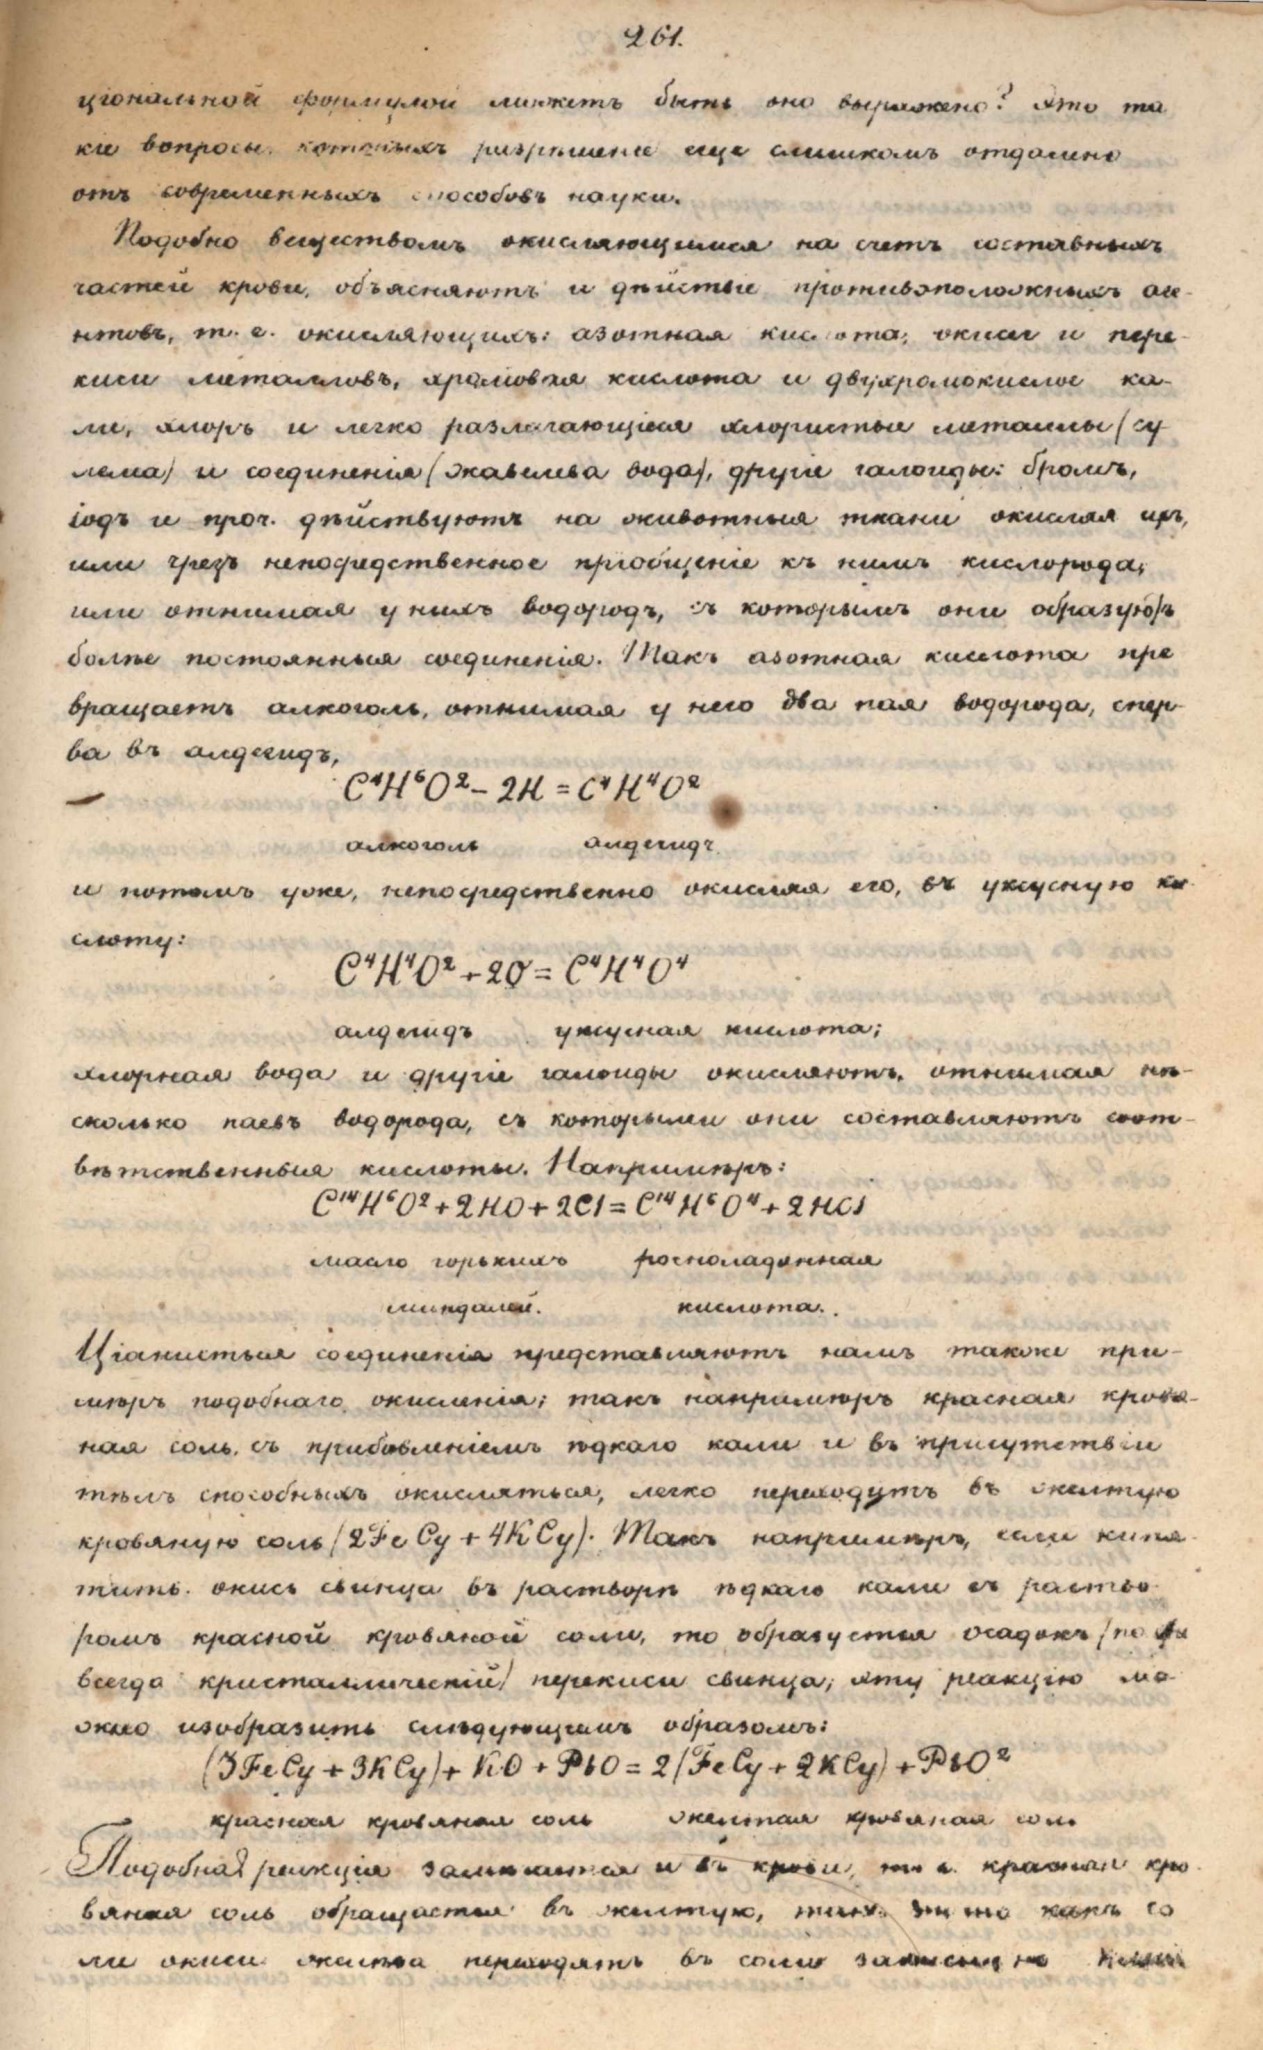 261.
ціональной формулой можетъ быть оно выражено? Это та
кіе вопросы, которыхъ разрѣшеніе еще слишкомъ отдалено
отъ современныхъ способовъ науки.
Подобно веществамъ окисляющимся на счетъ составныхъ
частей крови, объясняютъ и дѣйствіе противоположныхъ аге-
нтовъ, т. е. окисляющихъ: азотная кислота, окиси и пере-
киси металловъ, хромовая кислота и двухромокислое ка-
ли, хлоръ и легко разлагающіеся хлористые металлы (су
лема) и соединенія (жавелева вода), другіе галоиды: бромъ,
іодъ и проч. дѣйствуютъ на животныя ткани окисляя ихъ,
или чрезъ непосредственное пріобщеніе къ нимъ кислорода,
или отнимая у нихъ водородъ, съ которымъ они образуютъ
болѣе постоянныя соединенія. Такъ азотная кислота пре
вращаетъ алкоголь, отнимая у него два пая водорода, спер-
ва въ алдегидъ,
C⁴H⁶O² - 2H = C⁴H⁴O²
алкоголь алдегидъ
и потомъ уже, непосредственно окисляя его, въ уксусную ки-
слоту:
C⁴H⁴O² + 2O = C⁴H⁴O⁴
алдегидъ уксусная кислота;
хлорная вода и другіе галоиды окисляютъ, отнимая нѣ-
сколько паевъ водорода, съ которыми они составляютъ соот-
вѣтственныя кислоты. Напримѣръ:
C¹⁴H⁶O² + 2HO + 2Cl = C¹⁴H⁶O⁴ + 2HCl
масло горькихъ росноладонная
миндалей. кислота.
Ціанистыя соединенія представляютъ намъ также при-
мѣръ подобнаго окисленія; такъ напримѣръ красная кровя-
ная соль, съ прибавленіемъ ѣдкаго кали и въ присутствіи
тѣлъ способныхъ окисляться, легко переходитъ въ желтую
кровяную соль (2FeCy + 4KCy). Такъ напримѣръ, если кипя-
тить окись свинца въ растворѣ ѣдкаго кали съ раство-
ромъ красной кровяной соли, то образуется осадокъ (по
всегда кристаллическій) перекиси свинца; эту реакцію мо-
жно изобразить слѣдующимъ образомъ:
(3FeCy + 3KCy) + KO + PbO = 2(FeCy + 2KCy) + PbO²
красная кровяная соль желтая кровяная соль
Подобная реакція замѣчается и въ крови, т. е. красная кро
вяная соль обращается въ желтую, такъ какъ со
ли окиси желѣза переходятъ въ соли